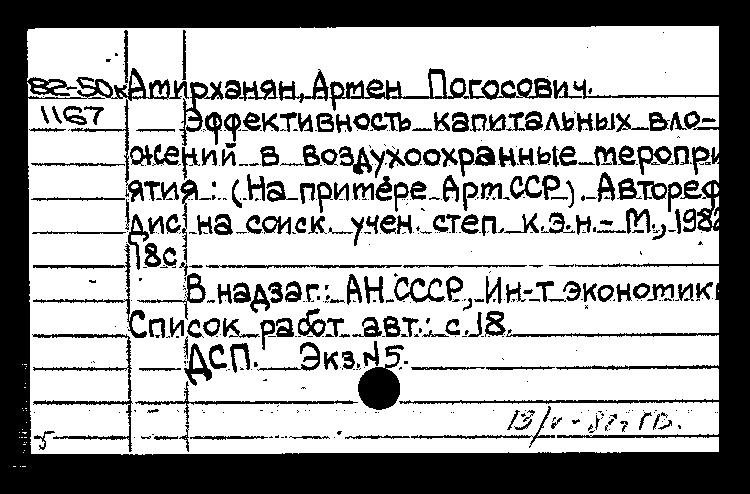 82-50к Атирханян, Артен Погосович.
1167 Эффективность капитальных вло-
ожений в воздухоохранные меропри
ятия : (На примере Арт.ССР). Автореф
дис. на соиск. учен. степ. к.э.н.- М., 1982
18с.
В надзаг.: АН СССР, Ин-т эконотики
Список работ авт.: с.18.
ДСП. Экз.N5.
13/V-82г ГВ.
5